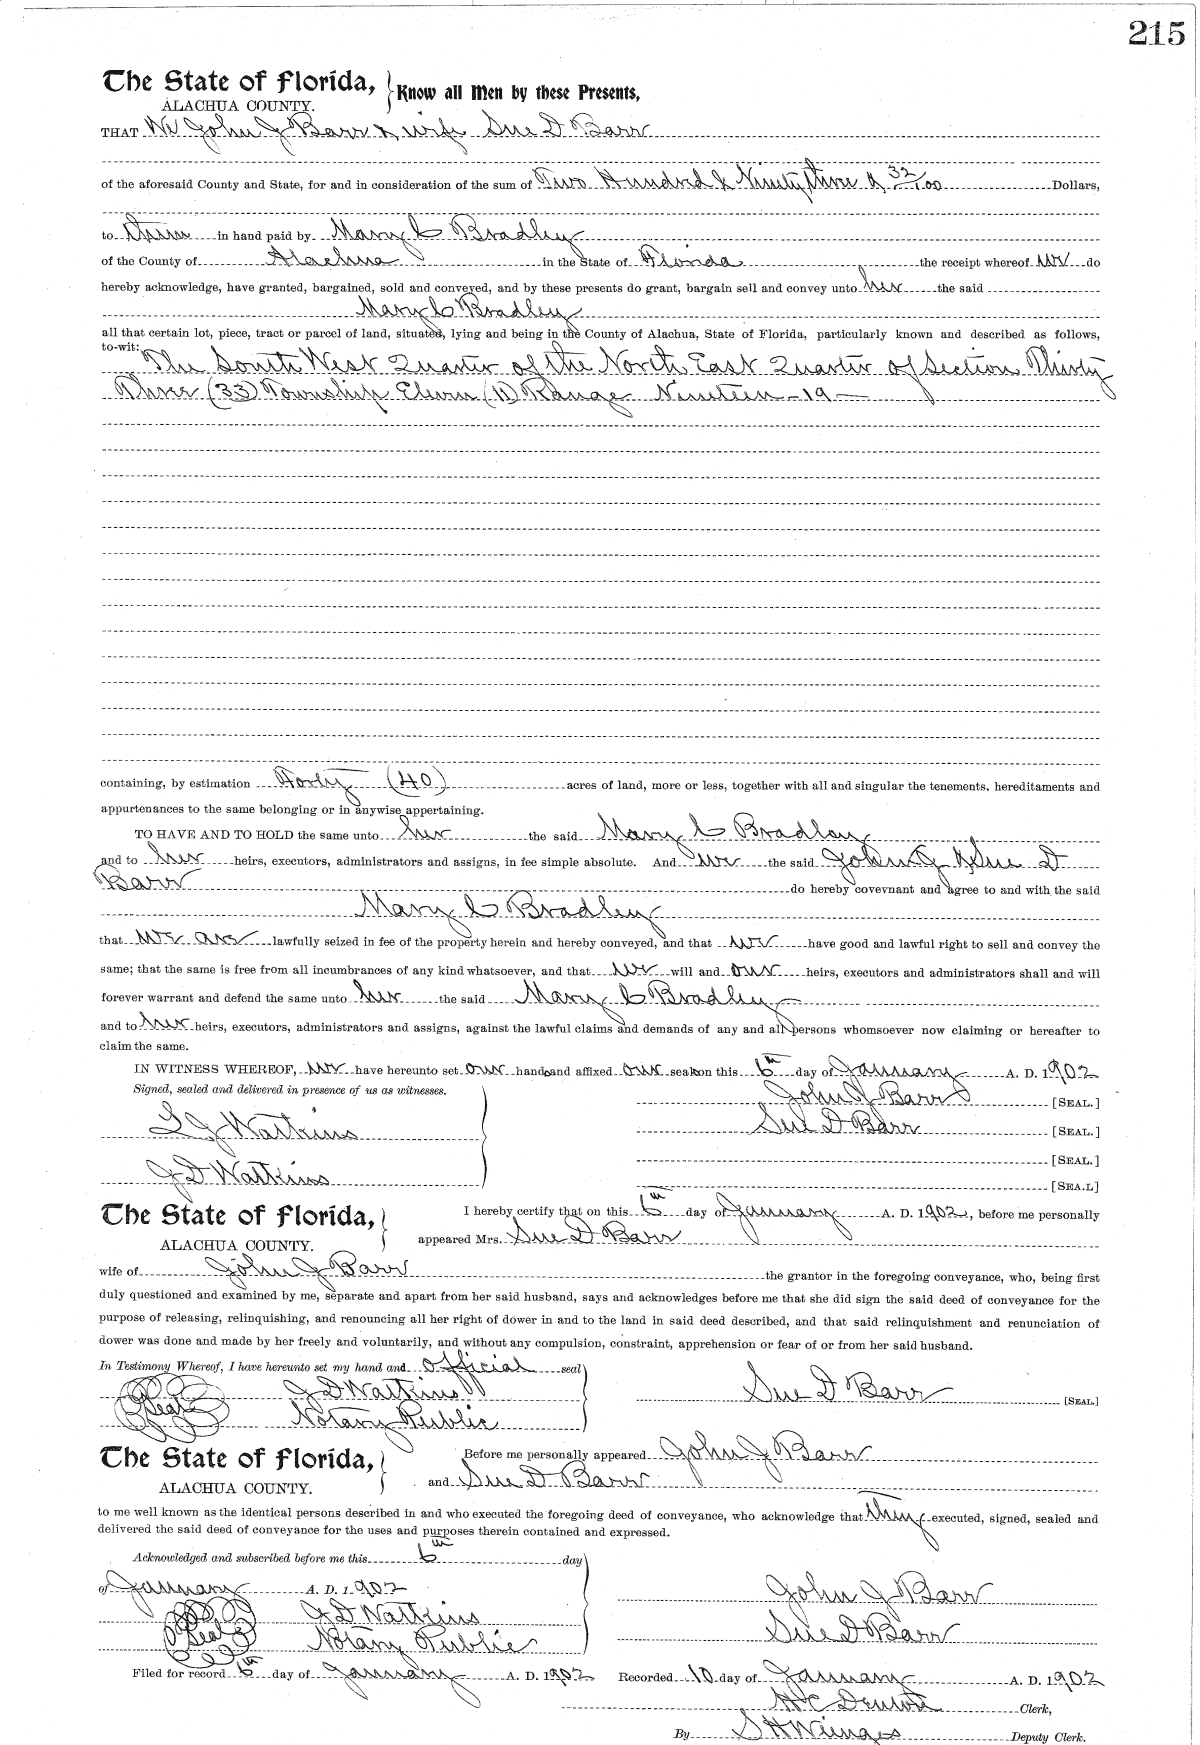 215
The State of Florida, Know all Men by these Presents,
ALACHUA COUNTY.
THAT We John J Barr & wife Sue D Barr
of the aforesaid County and State, for and in consideration of the sum of Two Hundred & Ninety three & 32/100 Dollars,
to them in hand paid by Mary C Bradley
of the County of Alachua in the State of Florida the receipt whereof we do
hereby acknowledge, have granted, bargained, sold and conveyed, and by these presents do grant, bargain sell and convey unto her the said
Mary C Bradley
all that certain lot, piece, tract or parcel of land, situated, lying and being in the County of Alachua, State of Florida, particularly known and described as follows,
to-wit: The South West Quarter of the North East Quarter of Section Thirty
Three (33) Township Eleven (11) Range Nineteen -19-
containing, by estimation Forty (40) acres of land, more or less, together with all and singular the tenements, hereditaments and
appurtenances to the same belonging or in anywise appertaining.
TO HAVE AND TO HOLD the same unto her the said Mary C Bradley
and to her heirs, executors, administrators and assigns, in fee simple absolute. And we the said John J & Sue D
Barr do hereby covevnant and agree to and with the said
Mary C Bradley
that we are lawfully seized in fee of the property herein and hereby conveyed, and that we have good and lawful right to sell and convey the
same; that the same is free from all incumbrances of any kind whatsoever, and that we will and our heirs, executors and administrators shall and will
forever warrant and defend the same unto her the said Mary C Bradley
and to her heirs, executors, administrators and assigns, against the lawful claims and demands of any and all persons whomsoever now claiming or hereafter to
claim the same.
IN WITNESS WHEREOF, we have hereunto set our hands and affixed our seals on this 6th day of January A. D. 1902
Signed, sealed and delivered in presence of us as witnesses. John J Barr [SEAL.]
J Watkins Sue D Barr [SEAL.]
[SEAL.]
J D Watkins [SEA.L]
The State of Florida, I hereby certify that on this 6th day of January A. D. 1902, before me personally
ALACHUA COUNTY. appeared Mrs. Sue D Barr
wife of John J Barr the grantor in the foregoing conveyance, who, being first
duly questioned and examined by me, separate and apart from her said husband, says and acknowledges before me that she did sign the said deed of conveyance for the
purpose of releasing, relinquishing, and renouncing all her right of dower in and to the land in said deed described, and that said relinquishment and renunciation of
dower was done and made by her freely and voluntarily, and without any compulsion, constraint, apprehension or fear of or from her said husband.
In Testimony Whereof, I have hereunto set my hand and official seal
J D Watkins Sue D Barr [SEAL]
Seal Notary Public
The State of Florida, Before me personally appeared John J Barr
ALACHUA COUNTY. and Sue D Barr
to me well known as the identical persons described in and who executed the foregoing deed of conveyance, who acknowledge that they executed, signed, sealed and
delivered the said deed of conveyance for the uses and purposes therein contained and expressed.
Acknowledged and subscribed before me this 6th day
of January A. D. 1902 John J Barr
J D Watkins Sue D Barr
Seal Notary Public
Filed for record 6th day of January A. D. 1902 Recorded 10 day of January A. D. 1902
H C Denton Clerk,
By S H Wienges Deputy Clerk.